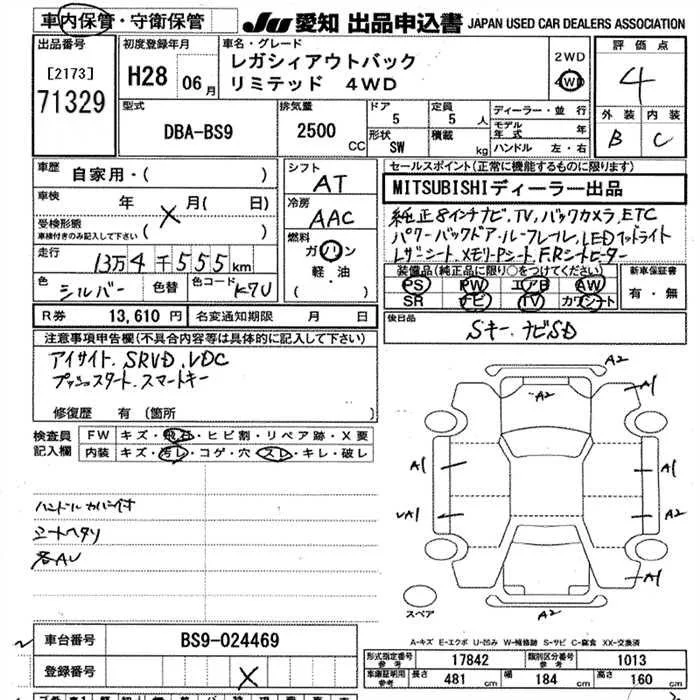 車内保管・守衛保管
JU 愛知 出品申込書 JAPAN USED CAR DEALERS ASSOCIATION
出品番号 [2173] 71329
初度登録年月 H28 06月
車名・グレード レガシィアウトバック リミテッド 4WD
2WD 4WD
評価点 4
外装 B 内装 C
型式 DBA-BS9
排気量 2500 CC
ドア 5 定員 5 人
形状 SW 積載 kg
ディーラー・並行
モデル年式 年
ハンドル 左・右
車歴 自家用・( )
車検 年 月( 日)
受検形態 車検付きのみ記入して下さい ( )
走行 13万4千555km
色 シルバー 色替 色コード K7U
シフト AT
冷房 AAC
燃料 ガソリン 軽・油 ( )
セールスポイント(正常に機能するものに限ります)
MITSUBISHIディーラー出品
純正8インチナビ、TV、バックカメラ、ETC
パワーバックドア・ルーフレール、LEDヘッドライト
レザーシート、メモリPシート、F.Rシートヒーター
装備品(純正品に限り○をつけてください)
PS PW エアB AW
SR ナビ TV カワシート
新車保証書 有・無
R券 13,610 円 名変通知期限 月 日
後日品 Sキー、ナビSD
注意事項申告欄(不具合内容等は具体的に記入して下さい)
アイサイト、SRVD、VDC
プッシュスタート、スマートキー
修復歴 有 (箇所
検査員記入欄
FW キズ・飛石・ヒビ割・リペア跡・X要
内装 キズ・汚レ・コゲ・穴・スレ・キレ・破レ
ハンドルカバー付
シートヘタリ
各AU
A2
A1
A2
A2
A1
A1
A2
A1
A2
スペア
A-キズ E-エクボ U-凹み W-補修跡 S-サビ C-腐食 XX-交換済
車台番号 BS9-024469
登録番号
形式指定番号 参考 17842 類別区分番号 参考 1013
車庫証明用 参考 長さ 481 cm 幅 184 cm 高さ 160 cm